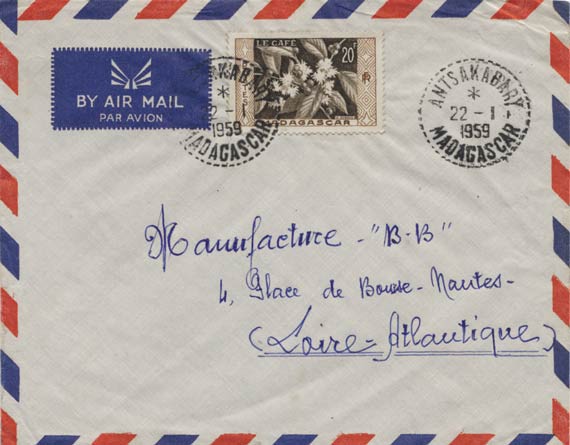 BY AIR MAIL
PAR AVION
LE CAFÉ
20F
RF
MADAGASCAR
TSAKABARY
*
22 - 1
1959
MADAGASCAR
ANTSAKABARY
*
22 - 1
1959
MADAGASCAR
Manufacture - "B.B"
4, Place de Bourse - Nantes -
(Loire-Atlantique)